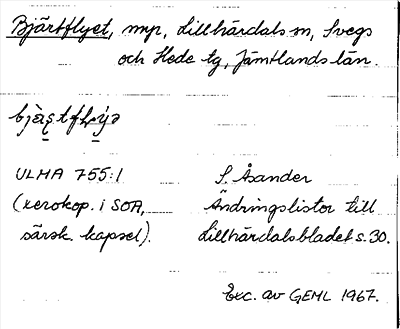 Bjärtflyet, myr, Lillhärdals sn, Svegs
och Hede tg, Jämtlands län.
ULMA 755:1
(xerokop. i SOA,
särsk. kapsel).
S. Åsander
Ändringslistor till
Lillhärdalsbladet s. 30.
Exc. av GEML 1967.